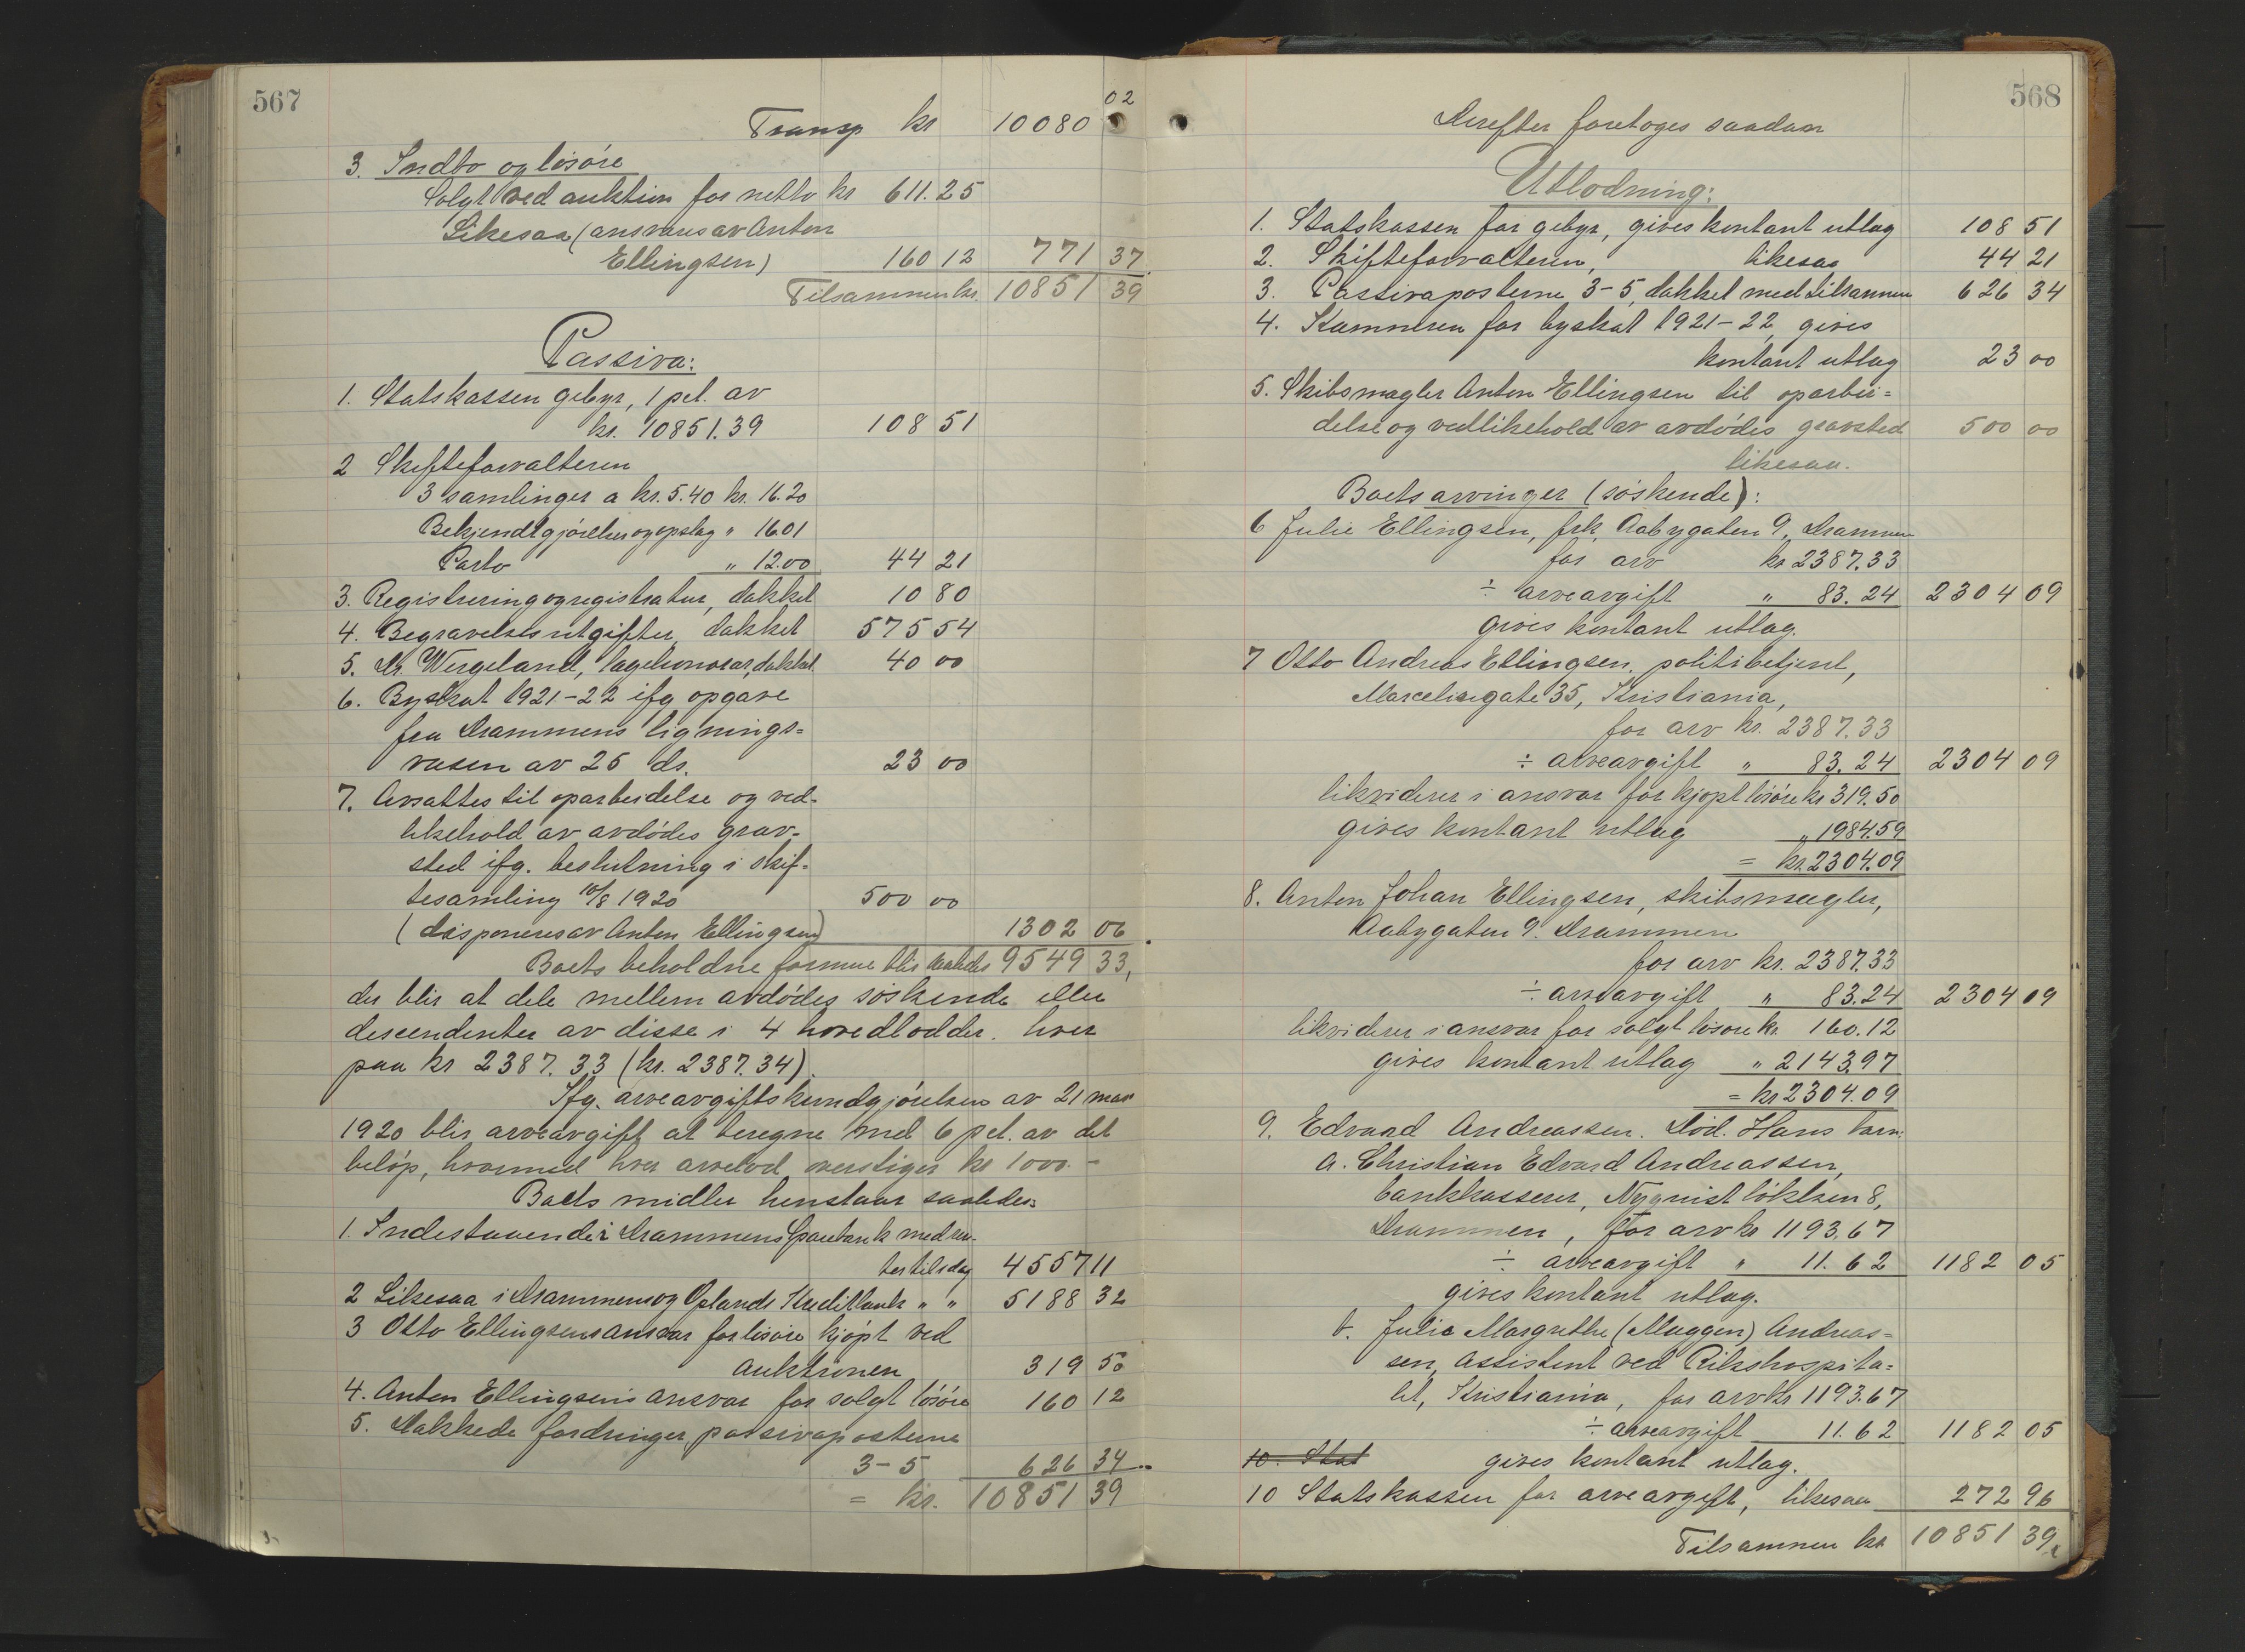 567
Transp kr 10080 02
3. Indbo og løsøre
Solgt ved auktion for netto kr 611.25
Likesaa (ansvares av Anton
Ellingsen) 160 12 771 37
Tilsammen kr. 10851 39
Passiva:
1. Statskassen gebyr, 1 pct. av
kr. 10851.39 108 51
2 Skifteforvalteren
3 samlinger a kr. 5.40 kr. 16.20
Bekjendtgjørelser og opslag " 16.01
Porto " 12.00 44 21
3. Registrering og registratur, dækket 10 80
4. Begravelsesutgifter, dækket 575 54
5. Dr. Wergeland, lægehonorar, dækket 40 00
6. Byskat 1921-22 ifg opgave
fra Drammens lignings-
væsen av 25 ds. 23 00
7. Avsættes til oparbeidelse og ved-
likehold av avdødes grav-
sted ifg. beslutning i skif-
tesamling 10/8 1920 500 00
(disponeres av Anton Ellingsen) 1302 06
Boets beholdne formue blir saaledes 9549 33,
der blir at dele mellem avdødes søskende eller
descendenter av disse i 4 hovedlodder. hver
paa kr 2387.33 (kr. 2387.34).
Ifg. arveavgiftskundgjørelsen av 21 mai
1920 blir arveavgift at beregne med 6 pct. av det
beløp, hvormed hver arvelod overstiger kr 1000.-
Boets midler henstaar saaledes:
1. Indestaaende i Drammens Sparebank med ren-
ter til idag 4557 11
2 Likesaa i Drammens og Oplands Kreditbank " " 5188 32
3 Otto Ellingsens ansvar for løsøre kjøpt ved
auktionen 319 50
4. Anton Ellingsens ansvar for solgt løsøre 160 12
5. Dækkede fordringer, passivaposterne
3-5 626 34
= kr. 10851 39
568
Derefter foretoges saadan
Utlodning:
1. Statskassen for gebyr, gives kontant utlæg 108 51
2. Skifteforvalteren, likesaa 44 21
3. Passivaposterne 3-5, dækket med tilsammen 626 34
4. Kæmneren for byskat 1921-22, gives
kontant utlæg 23 00
5. Skibsmægler Anton Ellingsen til oparbei-
delse og vedlikehold av avdødes gravsted 500 00
likesaa.
Boets arvinger (søskende):
6 Julie Ellingsen, frk, Aabygaten 9, Drammen
for arv kr 2387.33
÷ arveavgift " 83.24 2304 09
gives kontant utlæg.
7 Otto Andreas Ellingsen, politibetjent,
Marcelisegate 35, Kristiania,
for arv kr. 2387.33
÷ arveavgift " 83.24 2304 09
likviderer i ansvar for kjøpt løsøre kr 319.50
gives kontant utlæg " 1984.59
= kr. 2304.09
8. Anton Johan Ellingsen, skibsmægler,
Aabygaten 9. Drammen
for arv kr. 2387.33
÷ arveavgift " 83.24 2304 09
likviderer i ansvar for solgt løsøre kr. 160.12
gives kontant utlæg " 2143.97
= kr 2304.09
9. Edvard Andreassen. Død. Hans barn:
a. Christian Edvard Andreassen,
bankkasserer, Nyquist løkken 8,
Drammen, for arv kr 1193.67
÷ arveavgift " 11.62 1182 05
gives kontant utlæg.
b. Julie Margrethe (Maggen) Andreas-
sen, assistent ved Rikshospita-
let, Kristiania, for arv kr 1193.67
÷ arveavgift 11.62 1182 05
10. Stat gives kontant utlæg.
10 Statskassen for arveavgift, likesaa 272 96
Tilsammen kr 10851 39